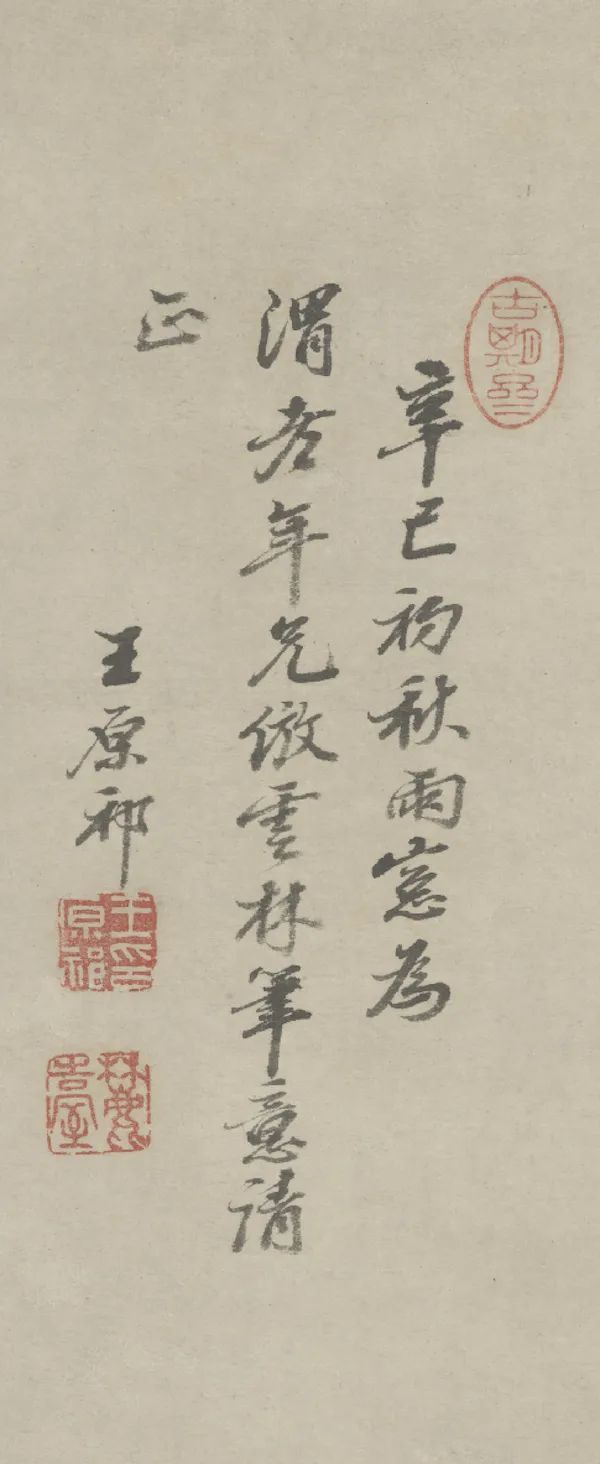 古期齋
辛巳初秋雨窓為
渭老年兄倣雲林筆意請
正
王原祁
王原祁印
麓臺